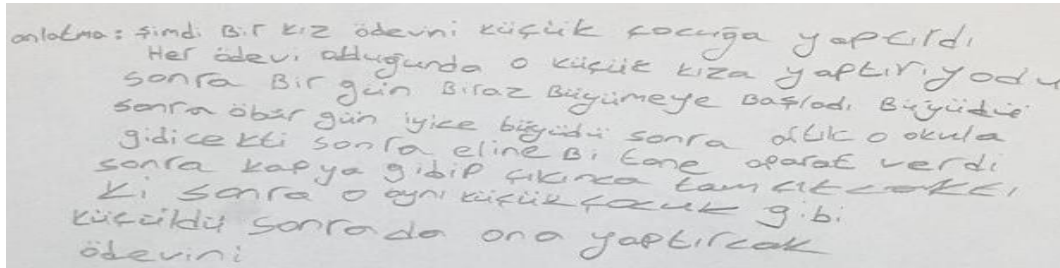 anlatma: şimdi Bir kız ödevini küçük çocuğa yaptırdı
Her ödevi olduğunda o küçük kıza yaptırıyodu
sonra Bir gün Biraz Büyümeye Başladı Büyüdü
sonra öbür gün iyice büyüdü sonra artık o okula
gidicekti sonra eline Bi tane aparat verdi
sonra kapya gidip çıkınca tam çıkcaktı
ki sonra o aynı küçük çocuk gibi
küçüldü sonrada ona yaptırcak
ödevini